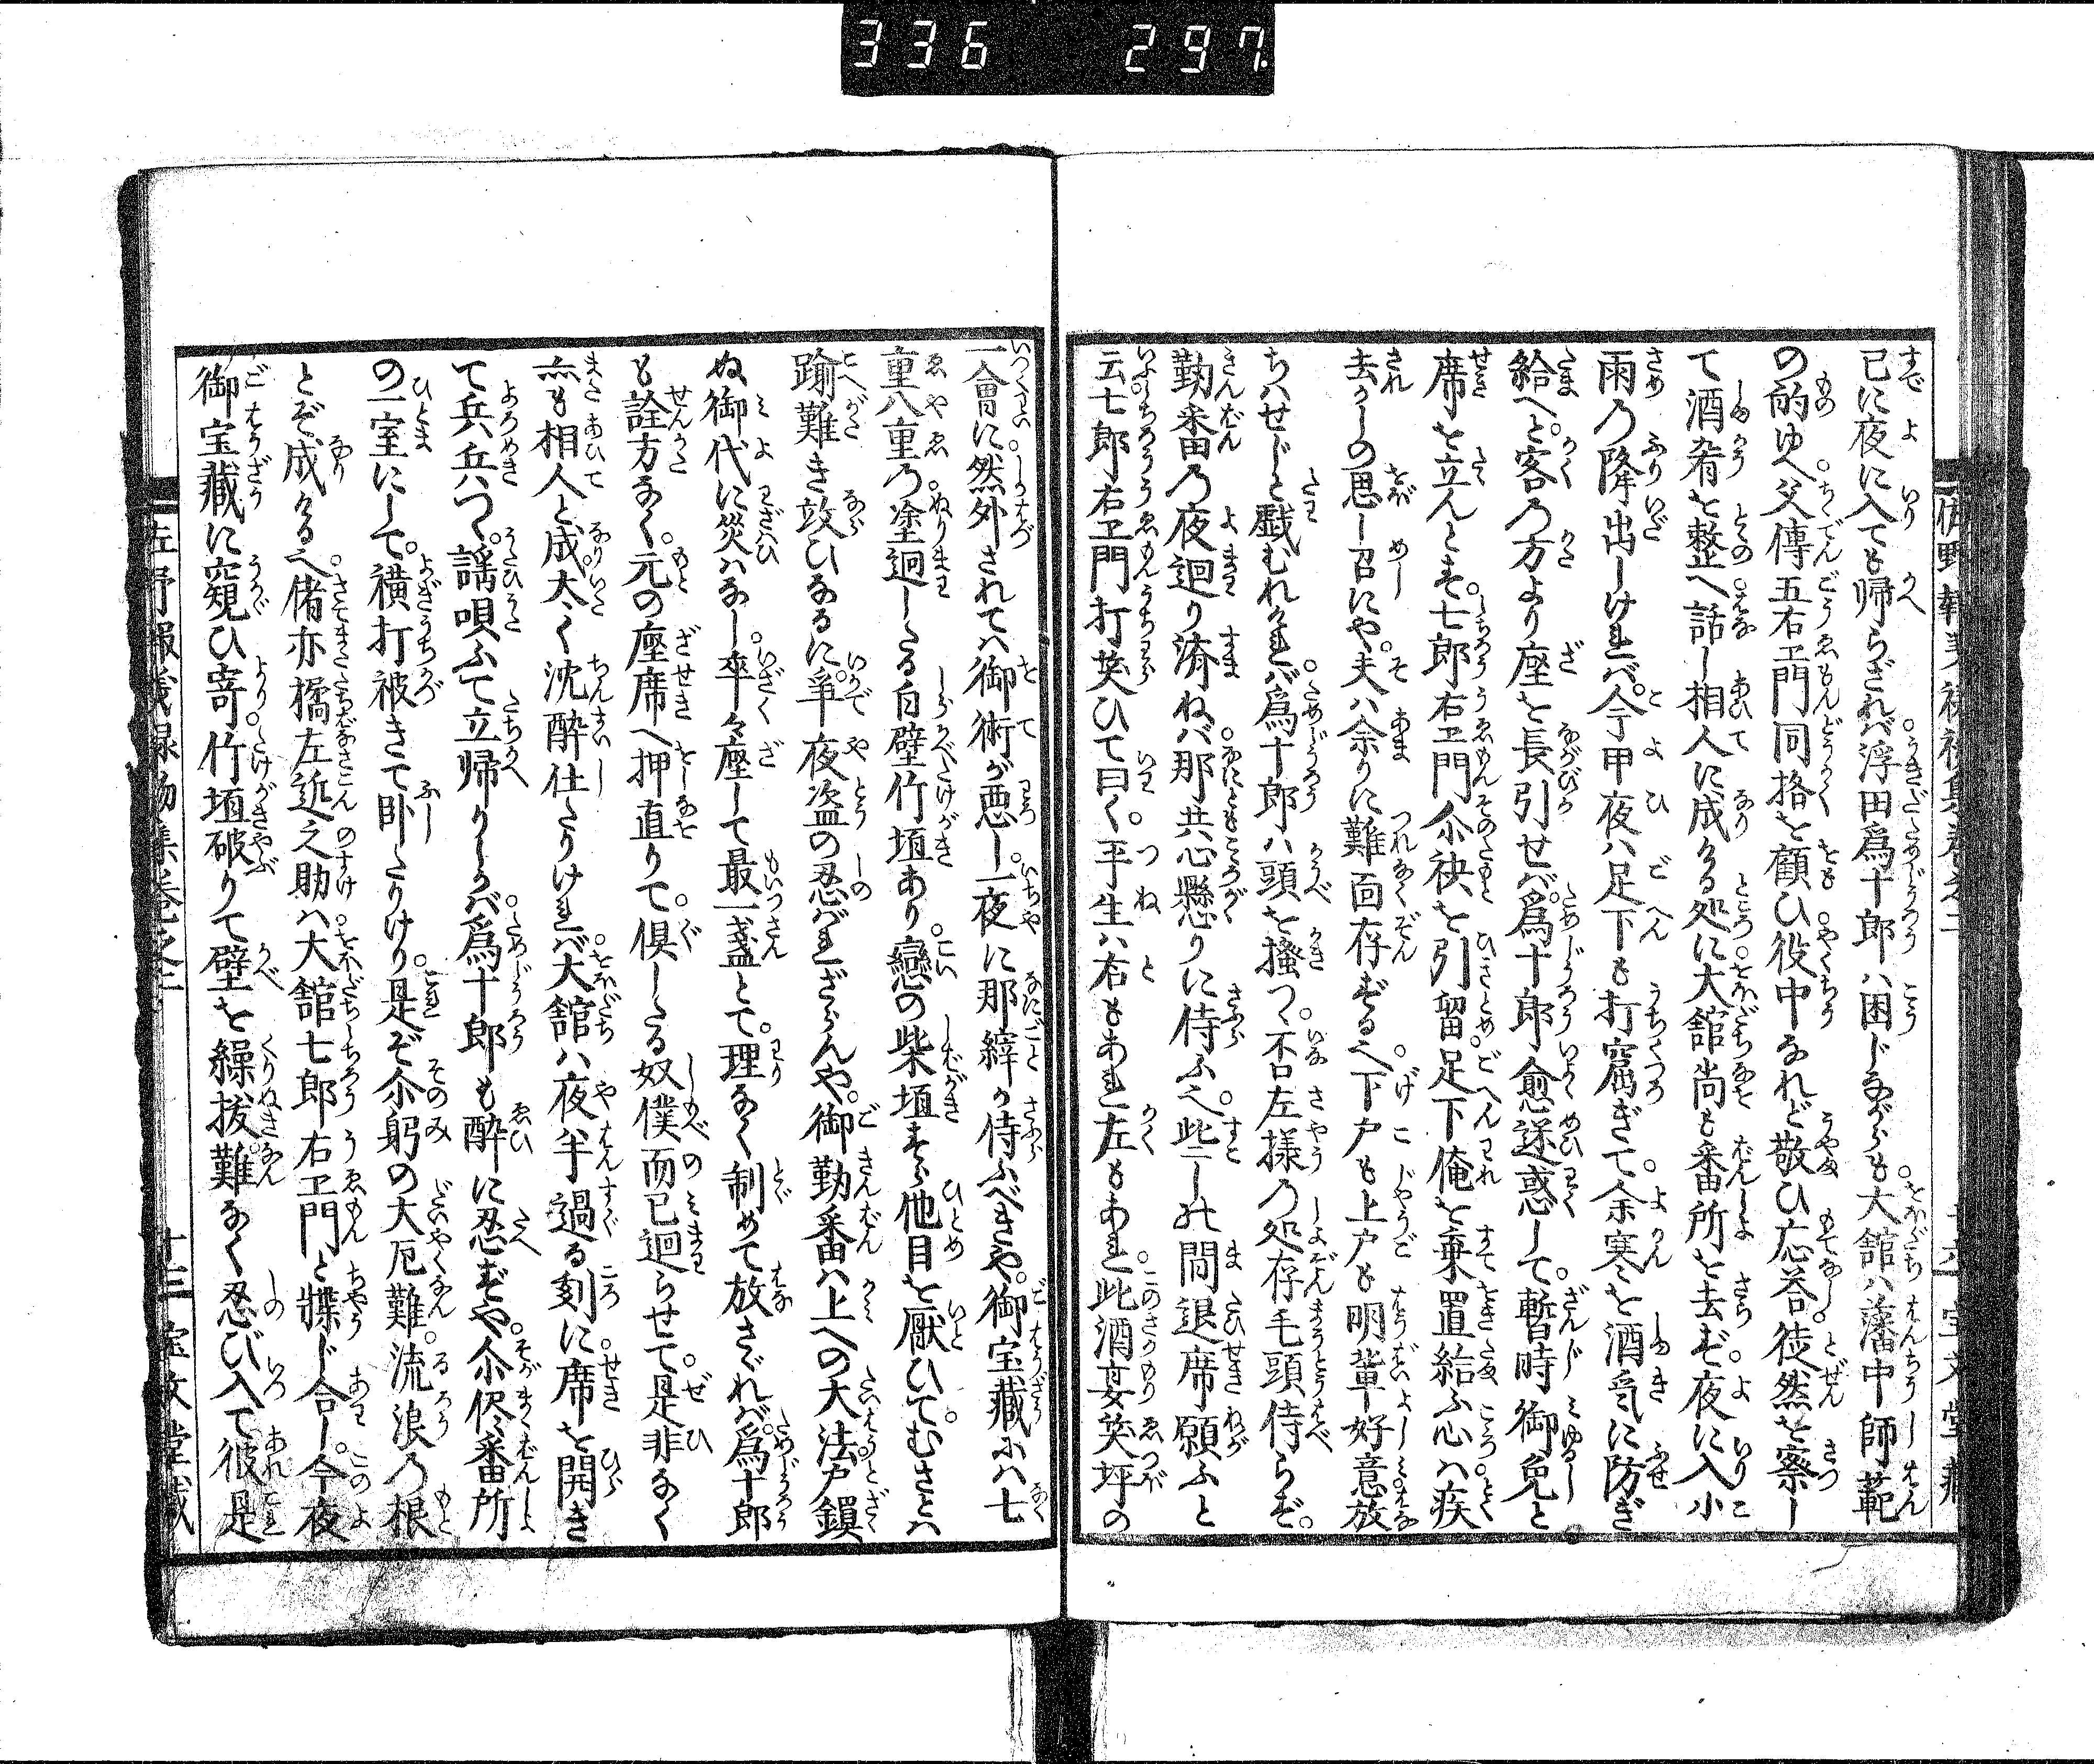 336 297
已に夜に入ても帰らざれバ浮田爲十郎ハ困じながらも大舘ハ藩中師範
の的ゆへ父傳五右エ門同挌を顧ひ役中なれど敬ひ応荅徒然を察し
て酒肴を整へ話し相人に成ける処に大舘尚も番所を去ず夜に入小
雨の降出しけれバ今甲夜ハ足下も打窟ぎて余寒を酒気に防ぎ
給へと客の方より座を長引せバ爲十郎愈迷惑して暫時御免と
席を立んとす七郎右エ門尒袂を引留足下俺を棄置給ふ心ハ疾
去かしの思し召にや夫ハ余りに難面存ずる也下戸も上戸も明輩好意放
ちハせじと戯むれけれバ爲十郎ハ頭を掻つゝ否左様の処存毛頭侍らず
勤番の夜迴り済ねバ那共心懸りに侍ふ也些しの間退席願ふと
云七郎右エ門打笑ひて曰く平生ハ右もあれ左もあれ此酒宴笑坪の
一會に然外されてハ御術が悪し一夜に那縡か侍ふべきや御宝藏にハ七
重八重の塗迴したる白壁竹垣あり戀の柴垣すら他目を厭ひてむさとハ
踰難き故ひなるに爭夜盗の忍バれざらんや御勤番ハ上への大法戸鎖
ぬ御代に災ハなし卒々座して最一盞とて理なく制めて放さゞれバ爲十郎
も詮方なく元の座席へ押直りて倶したる奴僕而已迴らせて是非なく
亦も相人と成大く沈酔仕たりけれバ大舘ハ夜半過る刻に席を開き
て兵兵つゝ謡唄ふて立帰りしかバ爲十郎も酔に忍ずや尒侭番所
の一室にして𧝒打被きて卧たりけり是ぞ尒躬の大厄難流浪の根
とぞ成ける也偖亦橘左近之助ハ大舘七郎右エ門と牒じ合し今夜
御宝藏に窺ひ寄竹垣破りて壁を繰抜難なく忍び入て彼是
左野報義録物集巻之二 十三 宝文堂蔵